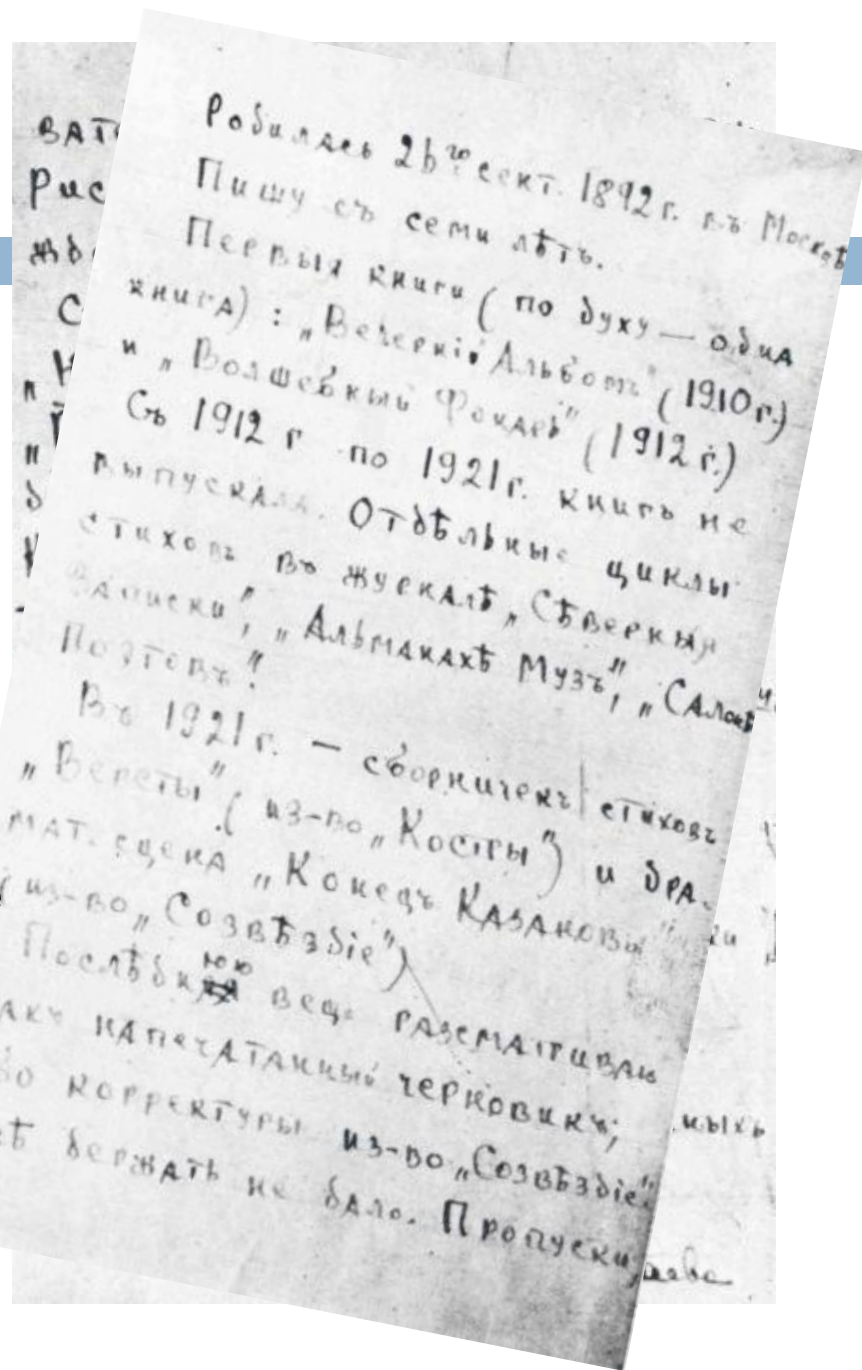 Родилась 26го сент. 1892 г. въ Москвѣ
Пишу съ семи лѣтъ.
Первыя книги (по духу — одна
книга) : „Вечернiй Альбомъ“ (1910 г.)
и „Волшебный Фонарь“ (1912 г.)
Съ 1912 г по 1921 г. книгъ не
выпускала. Отдѣльные циклы
стиховъ въ журналѣ „Сѣверныя
Записки“, „Альманахѣ Музъ“, „Салонѣ
Поэтовъ“.
Въ 1921 г. — сборничекъ стиховъ
„Версты“ (из-во „Костры“) и дра-
мат. сцена „Конецъ Казановы“
(из-во „Созвѣздiе“)
Послѣднюю вещь разсматриваю
акъ напечатанный черновикъ,
во корректуры из-во „Созвѣздiе“
нѣ держать не дало. Пропуски,
ват
Рис
жд
С
ныхъ
аева